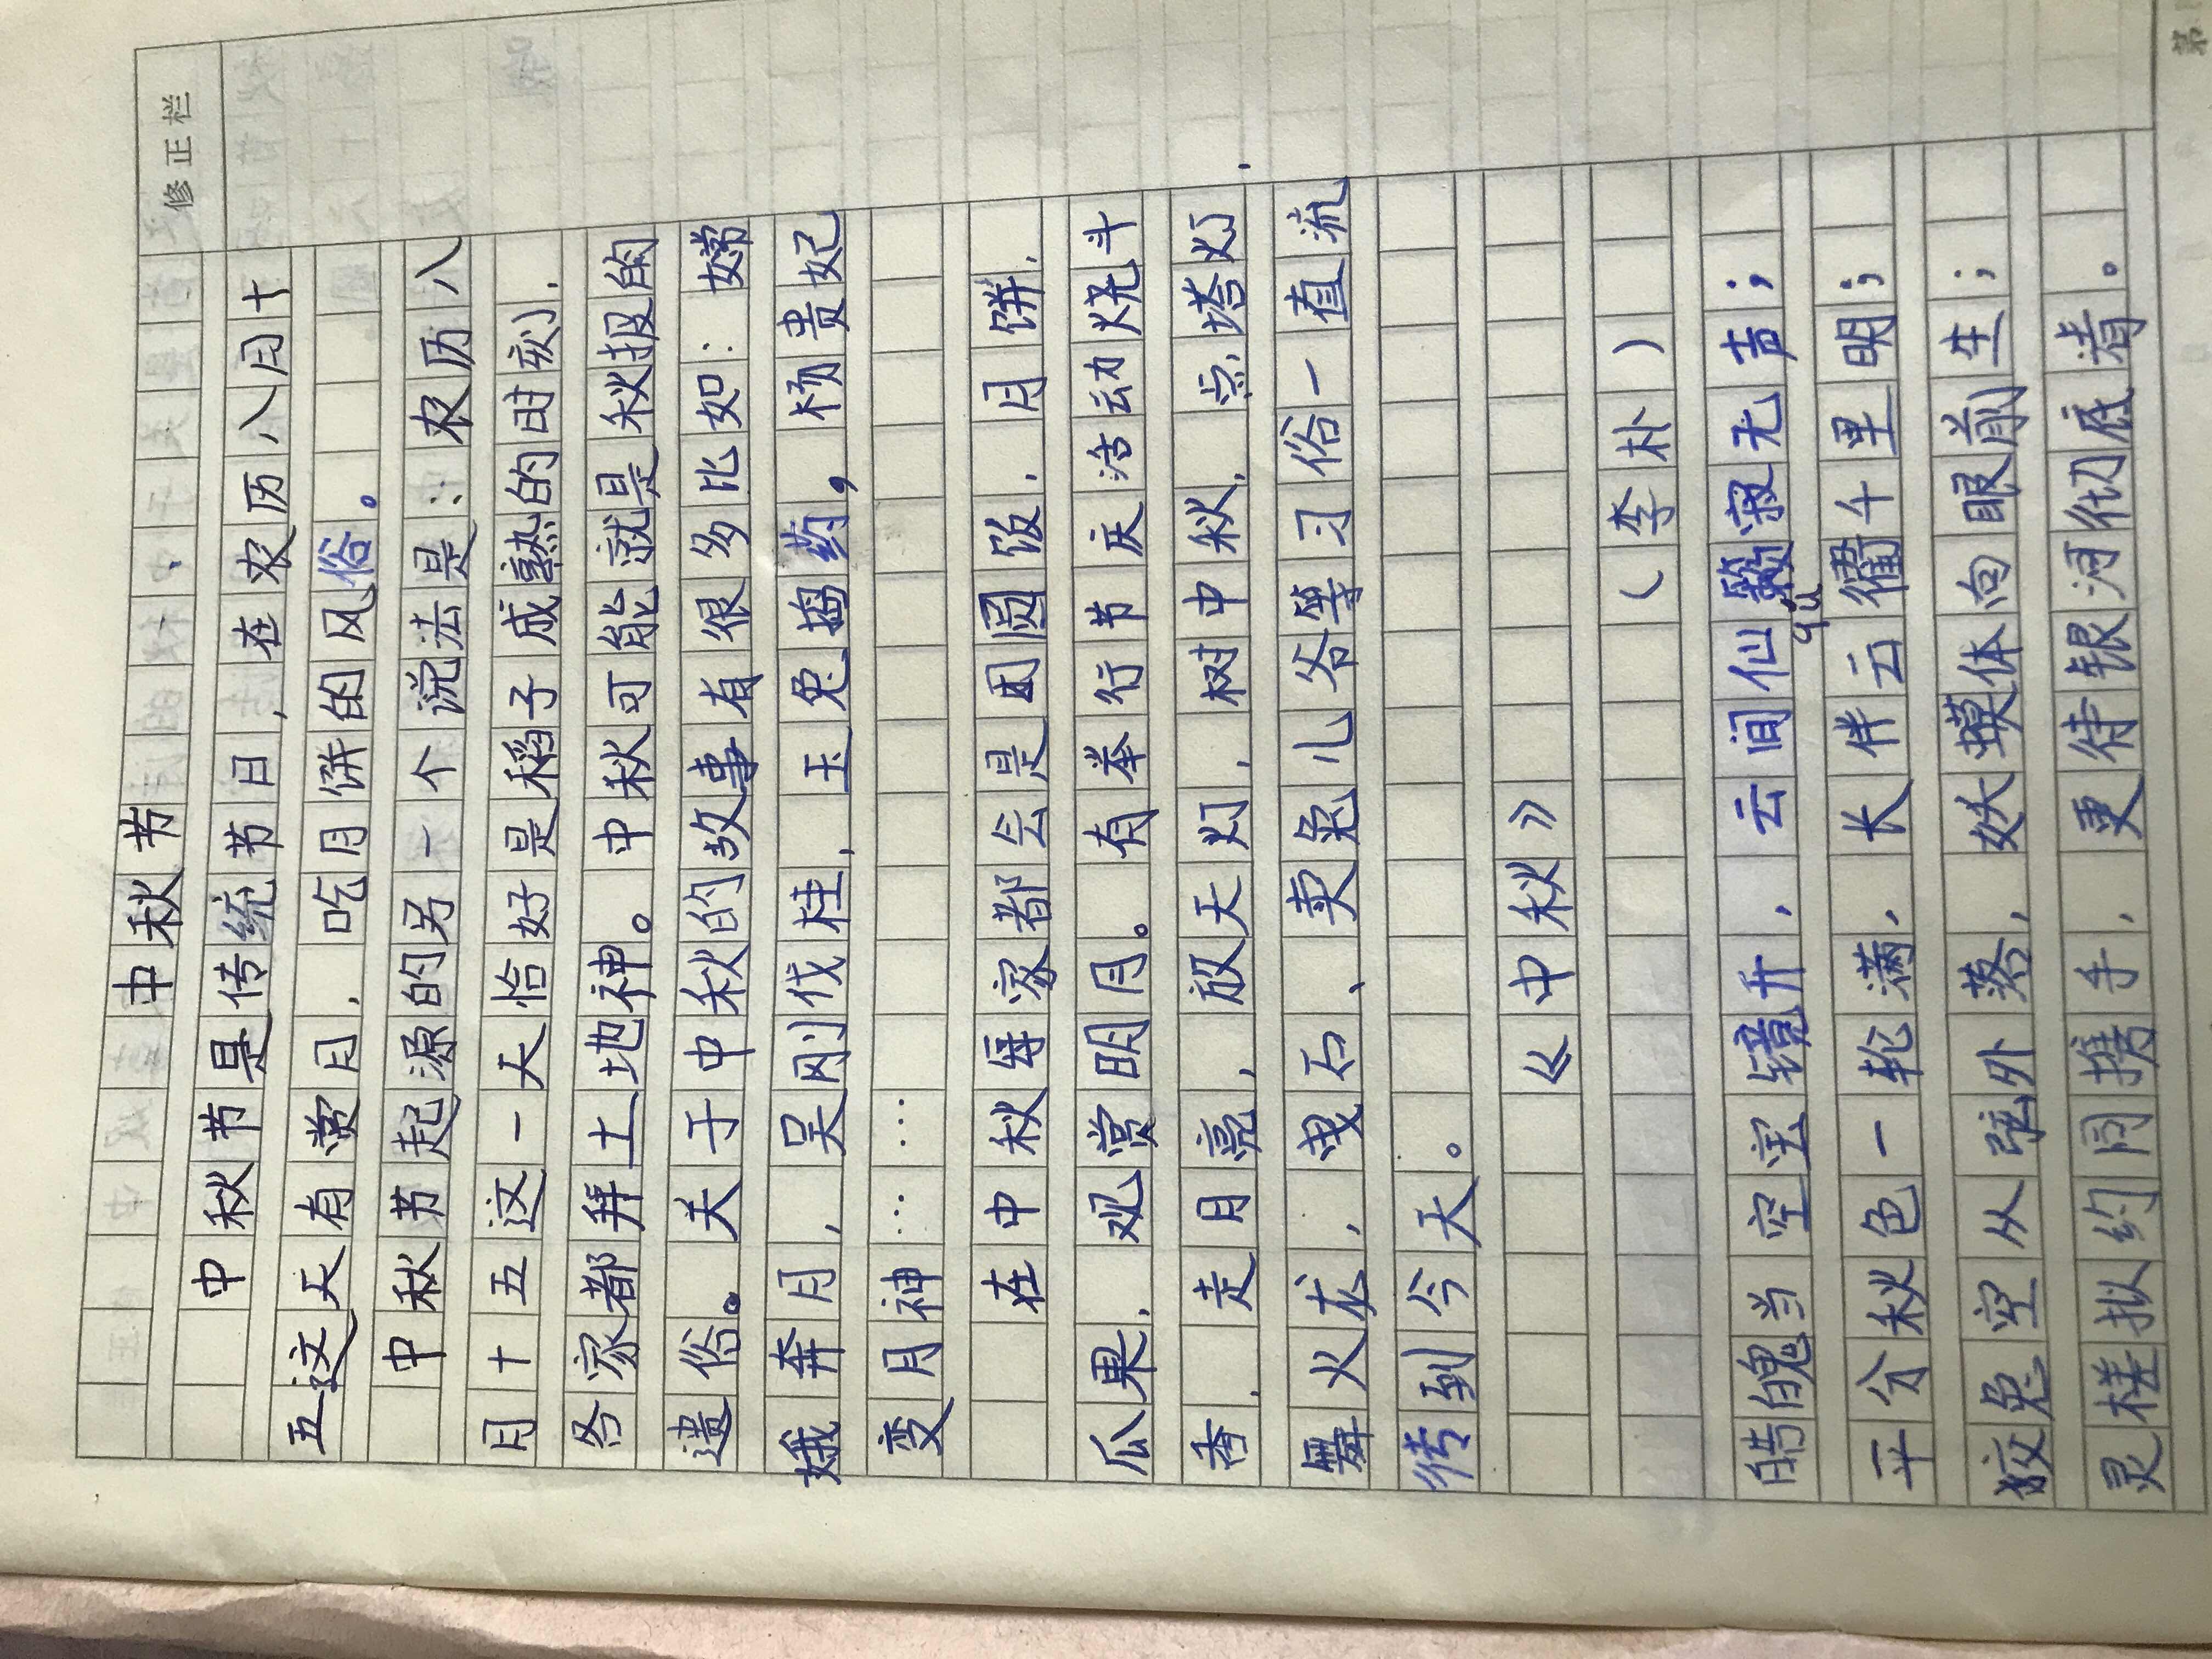 修正栏
中秋节
中秋节是传统节日,在农历八月十
五这天有赏月,吃月饼的风俗。
中秋节起源的另一个说法是:农历八
月十五这一天恰好是稻子成熟的时刻,
各家都拜土地神。中秋可能就是秋报的
遗俗。关于中秋的故事有很多比如:嫦
娥奔月,吴刚伐桂,玉兔捣药,杨贵妃
变月神……
在中秋每家都会是团圆饭,月饼,
瓜果,观赏明月。有举行节庆活动烧斗
香,走月亮,放天灯,树中秋,点塔灯
舞火龙,曳石、卖兔儿爷等习俗一值流
传到今天。
《中秋》
(李朴)
皓魄当空宝镜升,云间仙籁寂无声;
平分秋色一轮满,长伴云衢千里明;
qú
狡兔空从弦外落,妖蟆休向眼前生;
灵槎拟约同携手,更待银河彻底清。
第